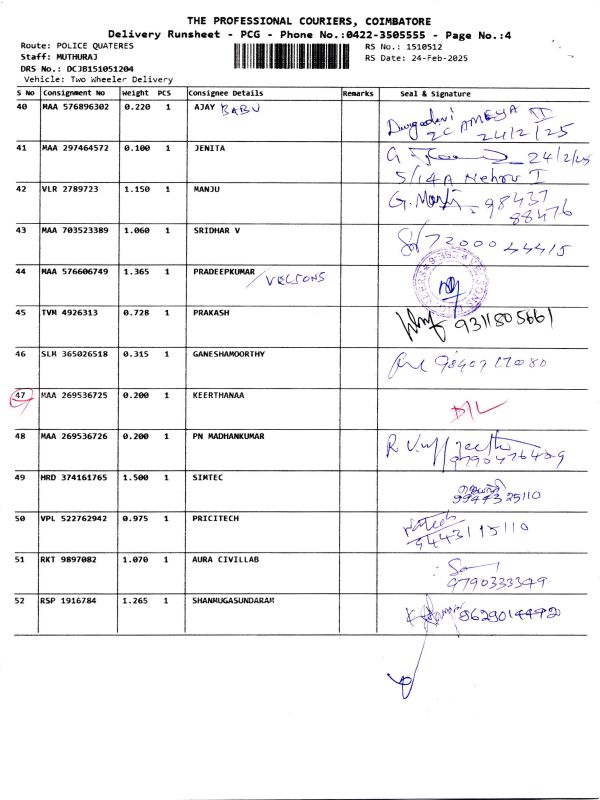 THE PROFESSIONAL COURIERS, COIMBATORE
Delivery Runsheet - PCG - Phone No.:0422-3505555 - Page No.:4
Route: POLICE QUATERES RS No.: 1510512
Staff: MUTHURAJ RS Date: 24-Feb-2025
DRS No.: DCJB151051204
Vehicle: Two Wheeler Delivery
S No Consignment No Weight PCS Consignee Details Remarks Seal & Signature
40 MAA 576896302 0.220 1 AJAY BABU
2C AMEYA II
24/2/25
41 MAA 297464572 0.100 1 JENITA
24/2/25
5/14A Nehru I
42 VLR 2789723 1.150 1 MANJU
98437
88476
43 MAA 703523389 1.060 1 SRIDHAR V
7200044415
44 MAA 576606749 1.365 1 PRADEEPKUMAR / VELSONS
45 TVM 4926313 0.728 1 PRAKASH
9311805661
46 SLM 365026518 0.315 1 GANESHAMOORTHY
47 MAA 269536725 0.200 1 KEERTHANAA
D/L
48 MAA 269536726 0.200 1 PN MADHANKUMAR
49 HRD 374161765 1.500 1 SIMTEC
9944325110
50 VPL 522762942 0.975 1 PRICITECH
9443115110
51 RKT 9897082 1.070 1 AURA CIVILLAB
9790333349
52 RSP 1916784 1.265 1 SHANMUGASUNDARAM